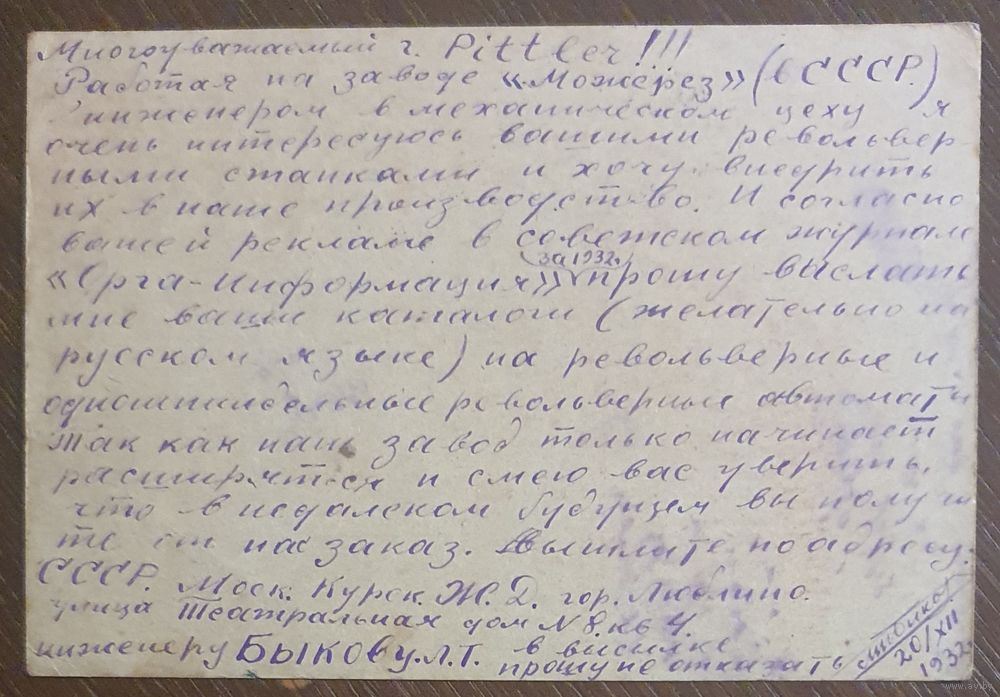 Многоуважаемый г. Pittler!!!
Работая на заводе «Можерез» (в СССР.)
инженером в механическом цеху я
очень интересуюсь вашими револьвер-
ными станками и хочу внедрить
их в наше производство. И согласно
вашей рекламе в советском журнале
за 1932г.
«Орга-Информация» прошу выслать
мне ваши каталоги (желательно на
русском языке) на револьверные и
одношпиндельные револьверные автоматы
так как наш завод только начинает
расширяться и смею вас уверить,
что в недалеком будущем вы получи
те от нас заказ. Вышлите по адресу:
СССР. Моск. Курск. Ж.Д. гор. Люблино.
улица Театральная дом N 8. кв 4.
инженеру Быкову. Л.Т. в высылке
прошу не отказать
20/XII
1932г
www.ay.by